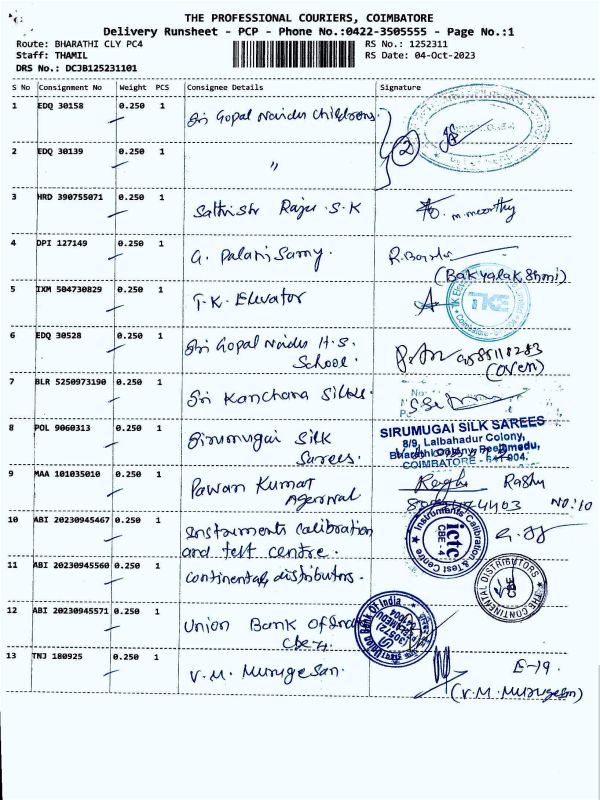 THE PROFESSIONAL COURIERS, COIMBATORE
Delivery Runsheet - PCP - Phone No.:0422-3505555 - Page No.:1
Route: BHARATHI CLY PC4 RS No.: 1252311
Staff: THAMIL RS Date: 04-Oct-2023
DRS No.: DCJB125231101
S No Consignment No Weight PCS Consignee Details Signature
1 EDQ 30158 0.250 1 Sri Gopal Naidu Childrens
2 EDQ 30139 0.250 1 " 2
3 HRD 390755071 0.250 1 Sathish Raju .S.K m.moorthy
4 DPI 127149 0.250 1 G. Palani Samy.
(Bakyalakshmi)
5 IXM 504730829 0.250 1 T.K. Elevator TKE
6 EDQ 30528 0.250 1 Sri Gopal Naidu H.S.
School.
7 BLR 5250973190 0.250 1 Sri Kanchana Silks.
8 POL 9060313 0.250 1 Sirumugai Silk
Sarees.
SIRUMUGAI SILK SAREES
8/9, Lalbahadur Colony,
Bharathi Colony, Peelamedu,
COIMBATORE - 641 004.
9 MAA 101035010 0.250 1 Pawan Kumar
Agerwal
NO:10
10 ABI 20230945467 0.250 1 Instruments Calibration
and test centre.
Instruments Calibration & Test Centre
ictc
CBE-4
11 ABI 20230945560 0.250 1 Continental distributors.
THE CONTINENTAL DISTRIBUTORS
12 ABI 20230945571 0.250 1 Union Bank Of India
Cbe-4
Union Bank Of India
13 TNJ 180925 0.250 1 V.M. Murugesan. E-19.
(V.M. Murugesan)